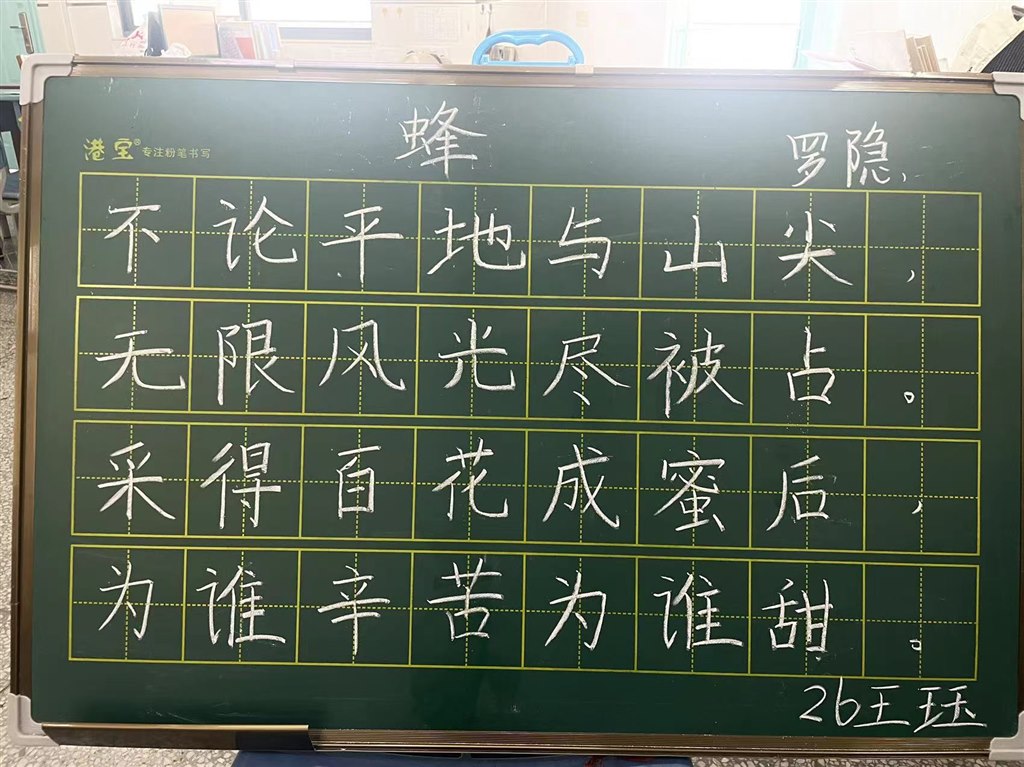 蜂
罗隐,
港宝® 专注粉笔书写
不论平地与山尖,
无限风光尽被占。
采得百花成蜜后,
为谁辛苦为谁甜。
26王珏